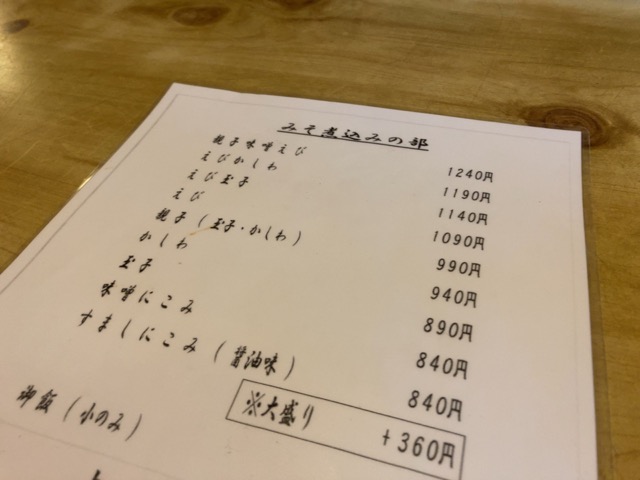 みそ煮込みの部
親子味噌えび 1240円
えびかしわ 1190円
えび玉子 1140円
えび 1090円
親子(玉子・かしわ) 990円
かしわ 940円
玉子 890円
味噌にこみ 840円
すましにこみ(醤油味) 840円
※大盛り +360円
御飯(小のみ)